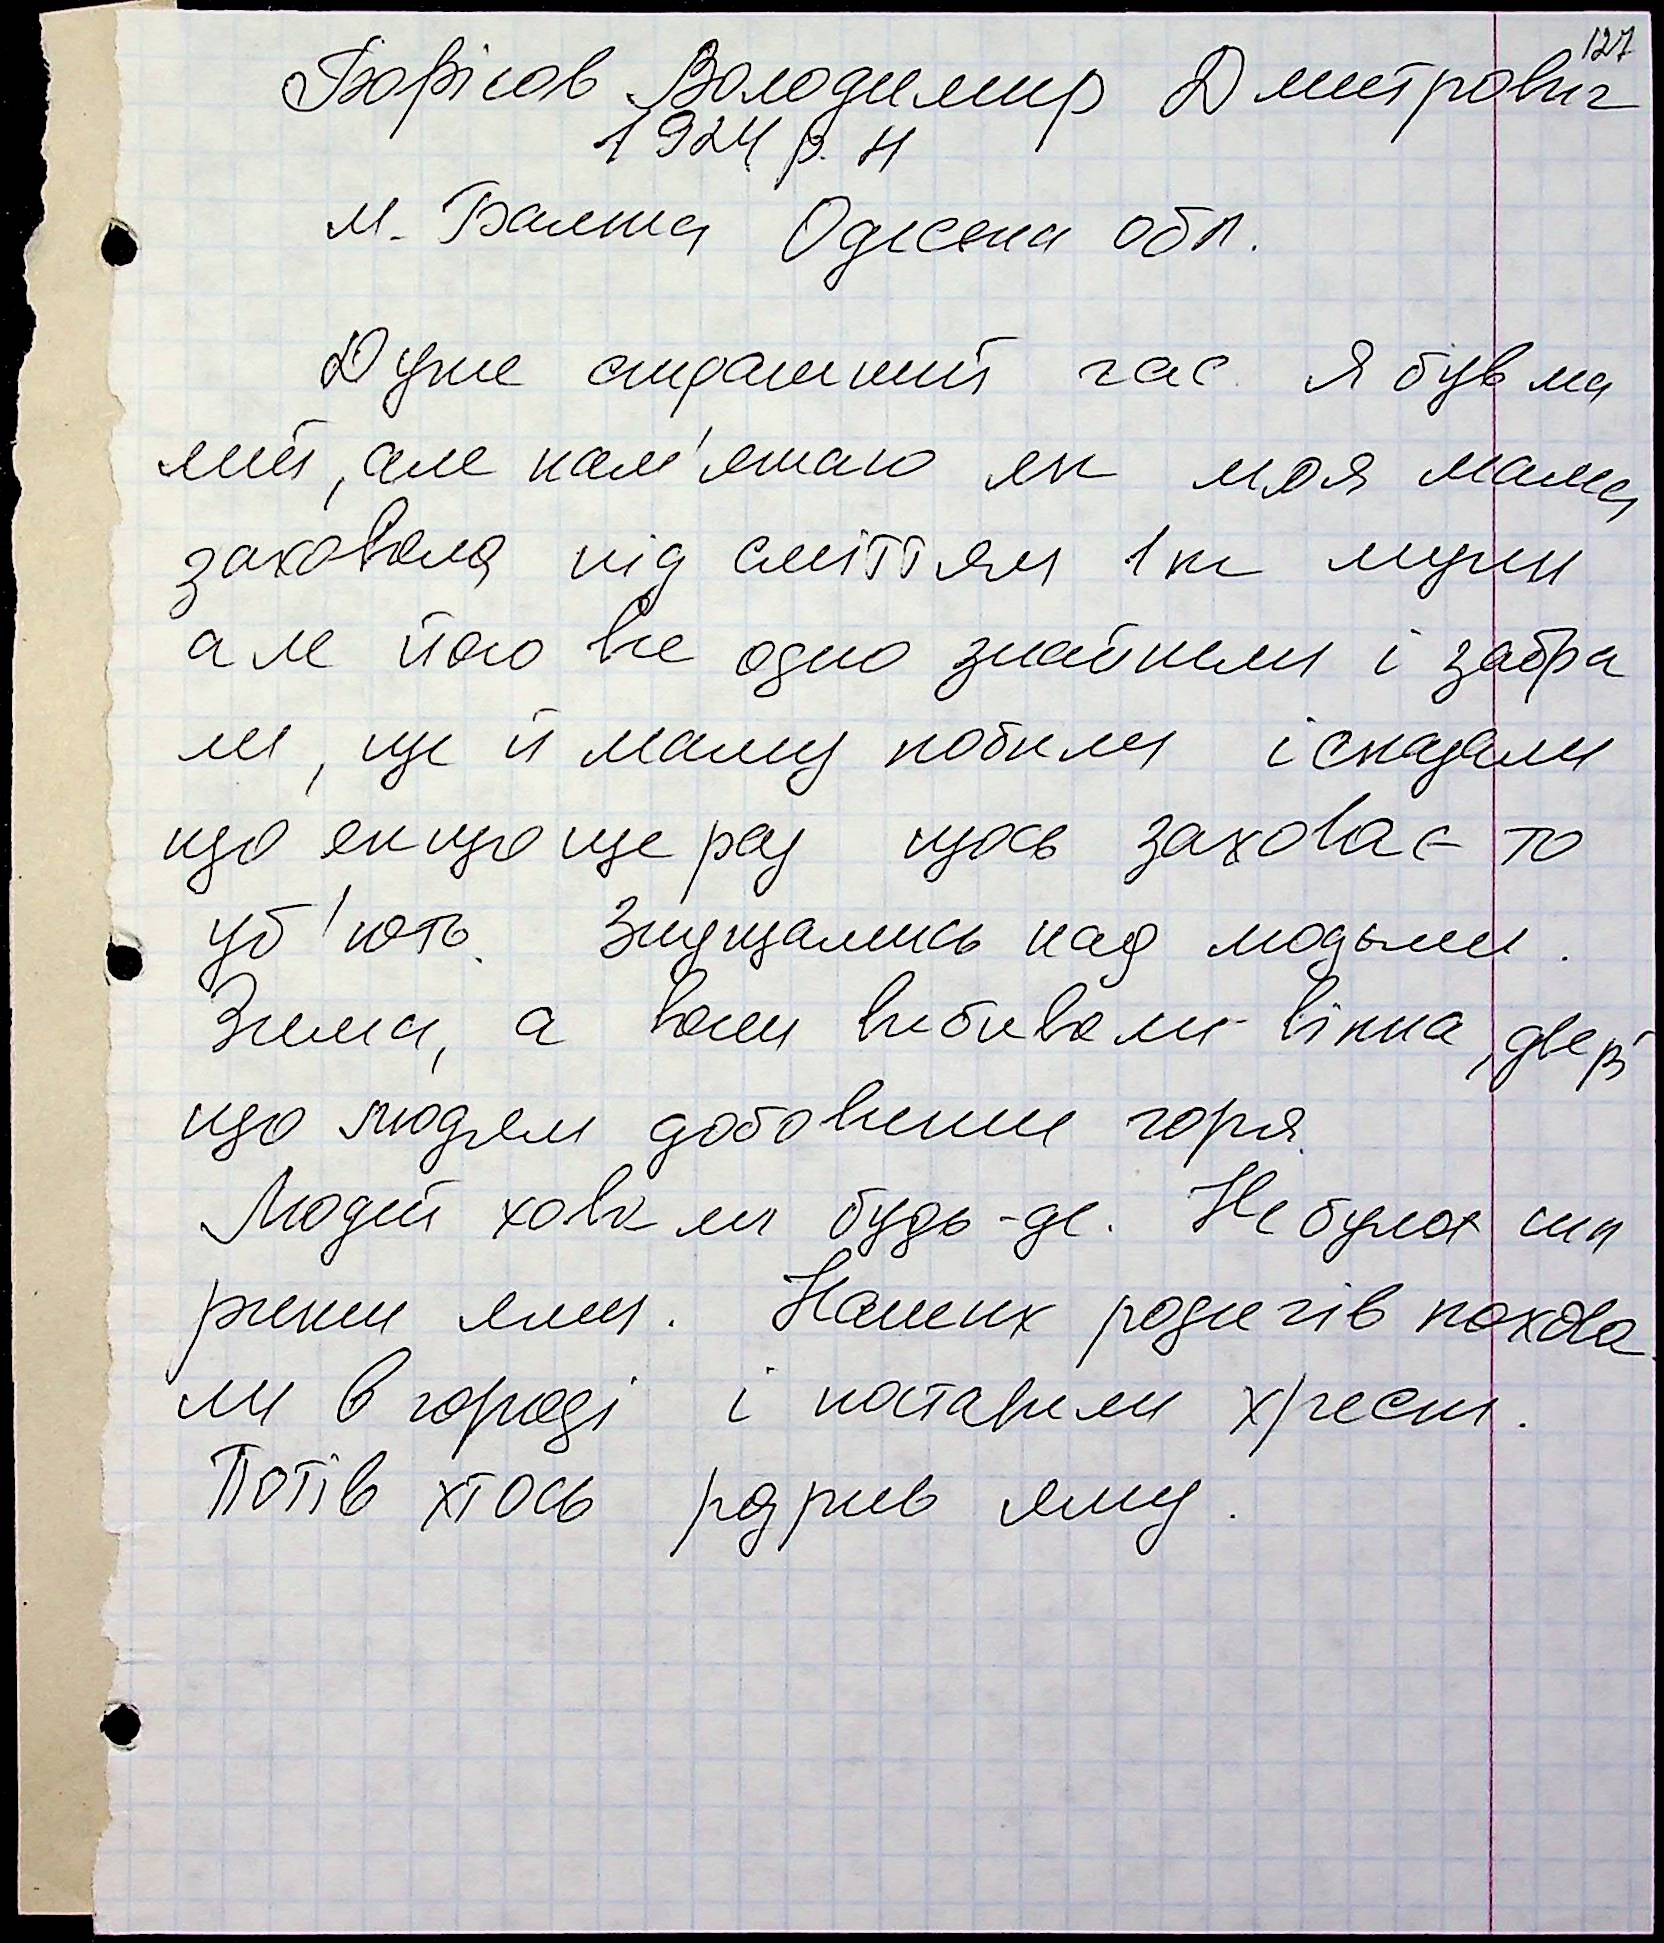 127
Борісов Володимир Дмитрович
1924 р. н
м. Балта Одеска обл.
Дуже страшний час. Я був ма
лий, але пам'ятаю як моя мама
заховала під сміттям 1 кг муки
але його все одно знайшли і забра
ли, ще й маму побили і сказали
що якщо ще раз щось заховає то
уб'ють. Знущались над людьми.
Зима, а вони вибивали вікна, двері
що людям добавити горя.
Людей ховали будь-де. Не було
рили ями. Наших родичів похова
ли в городі і поставили хрести.
Потів хтось розрив яму.